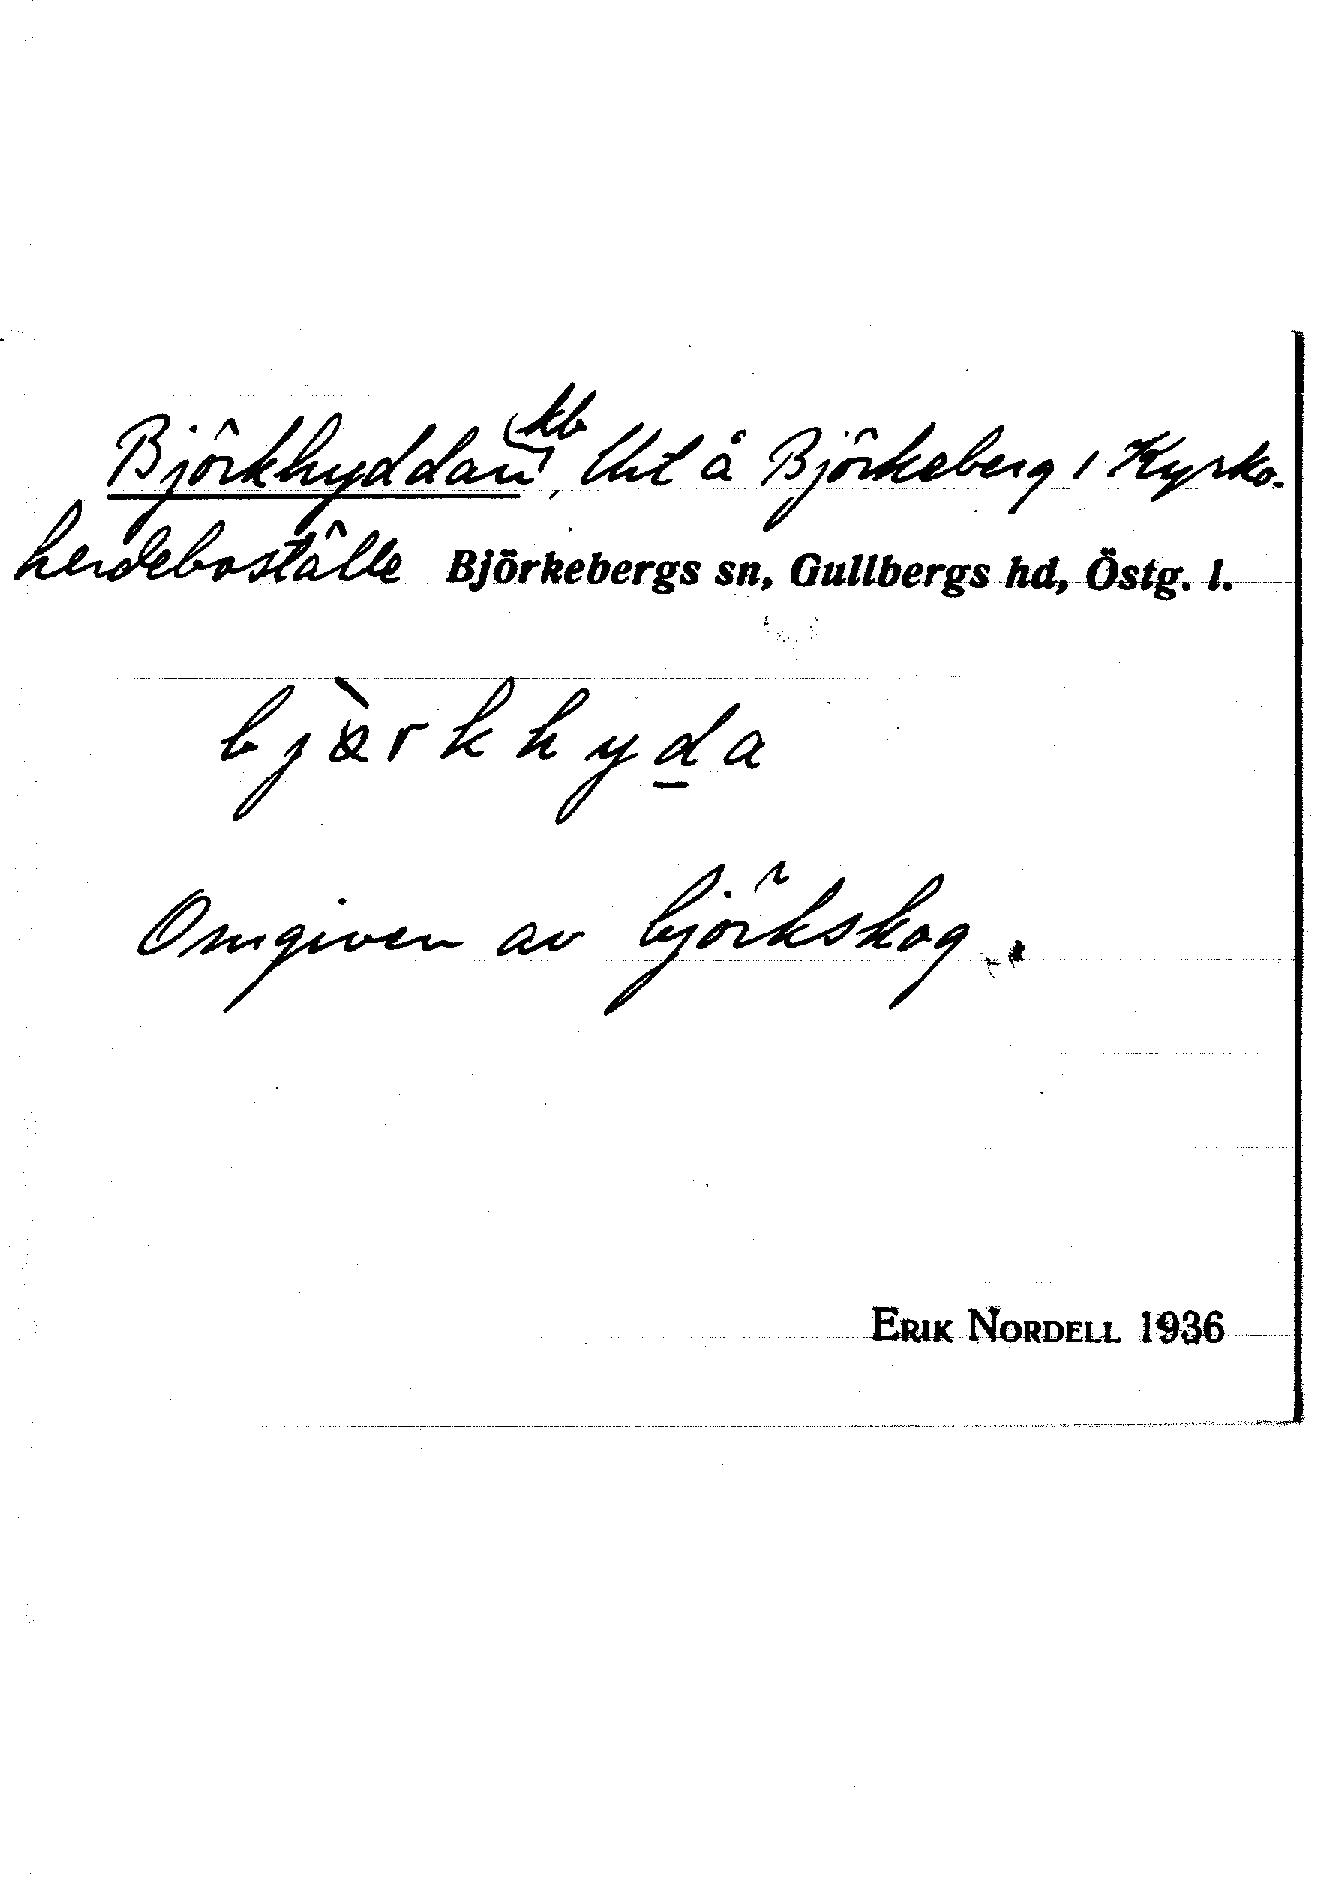 Björkhyddan (kb), lht å Björkeberg 1 Kyrko-
herdeboställe Björkebergs sn, Gullbergs hd, Östg. l.
bjærkhyda
Omgiven av björkskog.
ERIK NORDELL 1936